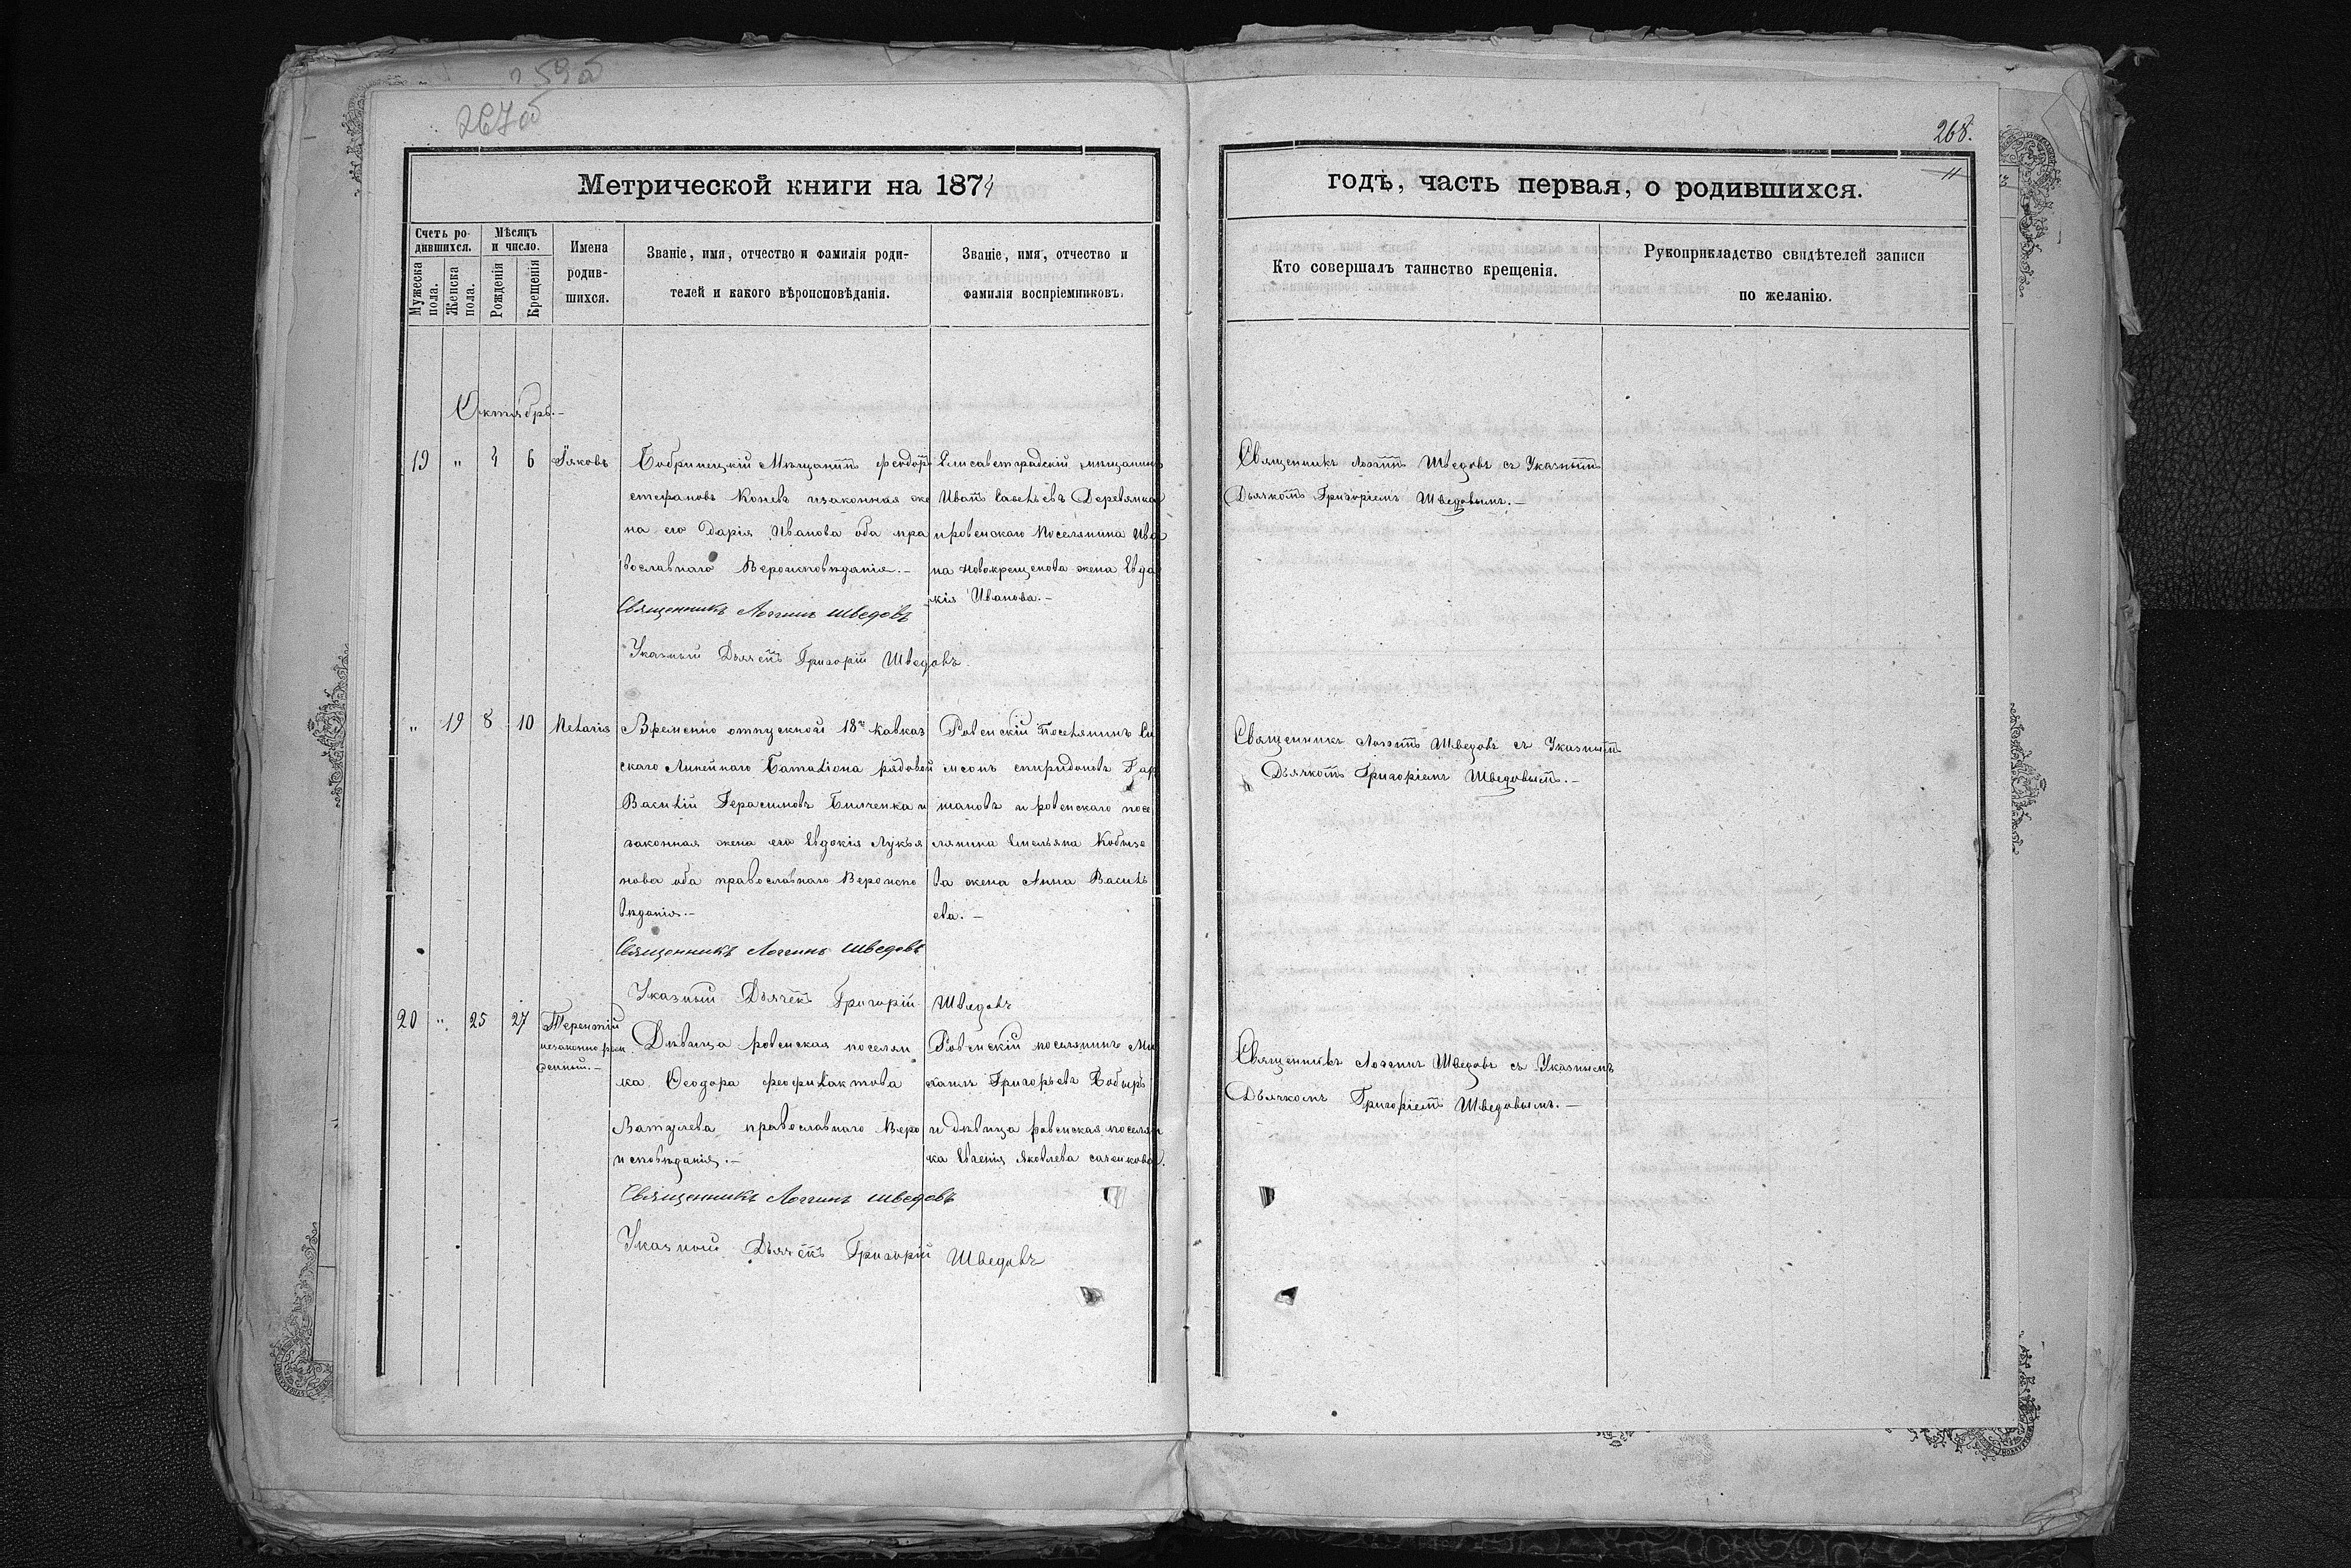 259об
267об
268.
11
Метрической книги на 1874
годъ, часть первая, о родившихся.
Счетъ ро-
дившихся.
Мужеска
пола.
Женска
пола.
Мѣсяцъ
и число.
Рожденія
Крещенія
Имена
родив-
шихся.
Званіе, имя, отчество и фамилія роди-
телей и какого вѣроисповѣданія.
Званіе, имя, отчество и
фамилія воспріемниковъ.
Кто совершалъ таинство крещенія.
Рукоприкладство свидѣтелей записи
по желанію.
Октябрь.-
19 " 4 6 Іяковъ
Бобринецкій Мѣщанинъ Феодоръ
стефановъ Коневъ изаконная же
на его Дарія Иванова оба пра
вославнаго Вероисповѣданія.-
Священникъ Логгинъ Шведовъ
Указный Дьячекъ Григорій Шведовъ
Елисаветградскій мѣщанинъ
Иванъ Савельевъ Деревянка
и ровенскаго Поселянина Ива
на Новокрещенова жена Евдо
кія Иванова.-
Священникъ Логгинъ Шведовъ съ Указнымъ
Дьячкомъ Григоріемъ Шведовымъ.-
" 19 8 10 Пелагія
Временно отпускной 18го Кавказ
скаго Линейнаго Баталіона рядовой
Василій Герасимовъ Билченка и
законная жена его Евдокія Лукья
нова оба православнаго Вероиспо
вѣданія.-
Священникъ Логгинъ Шведовъ
Указный Дьячекъ Григорій Шведовъ
Ровенскій Поселянинъ Си
меонъ спиридоновъ Гар
шановъ и ровенскаго посе
лянина Емельяна Кобызе
ва жена Анна Василь
ева.-
Священникъ Логгинъ Шведовъ съ Указнымъ
Дьячкомъ Григоріемъ Шведовымъ.-
20 " 25 27 Терентій
незаконно рож
денный.-
Дѣвица ровенская поселян
ка Феодора Феофилактова
Ватулева православнаго Веро
исповѣданія.-
Священникъ Логгинъ Шведовъ
Указный Дьячекъ Григорій Шведовъ
Ровенскій поселянинъ Ми
хаилъ Григорьевъ Бобырь
и дѣвица ровенская поселян
ка Евгенія Яковлева саченкова.
Священникъ Логгинъ Шведовъ съ Указнымъ
Дьячкомъ Григоріемъ Шведовымъ.-